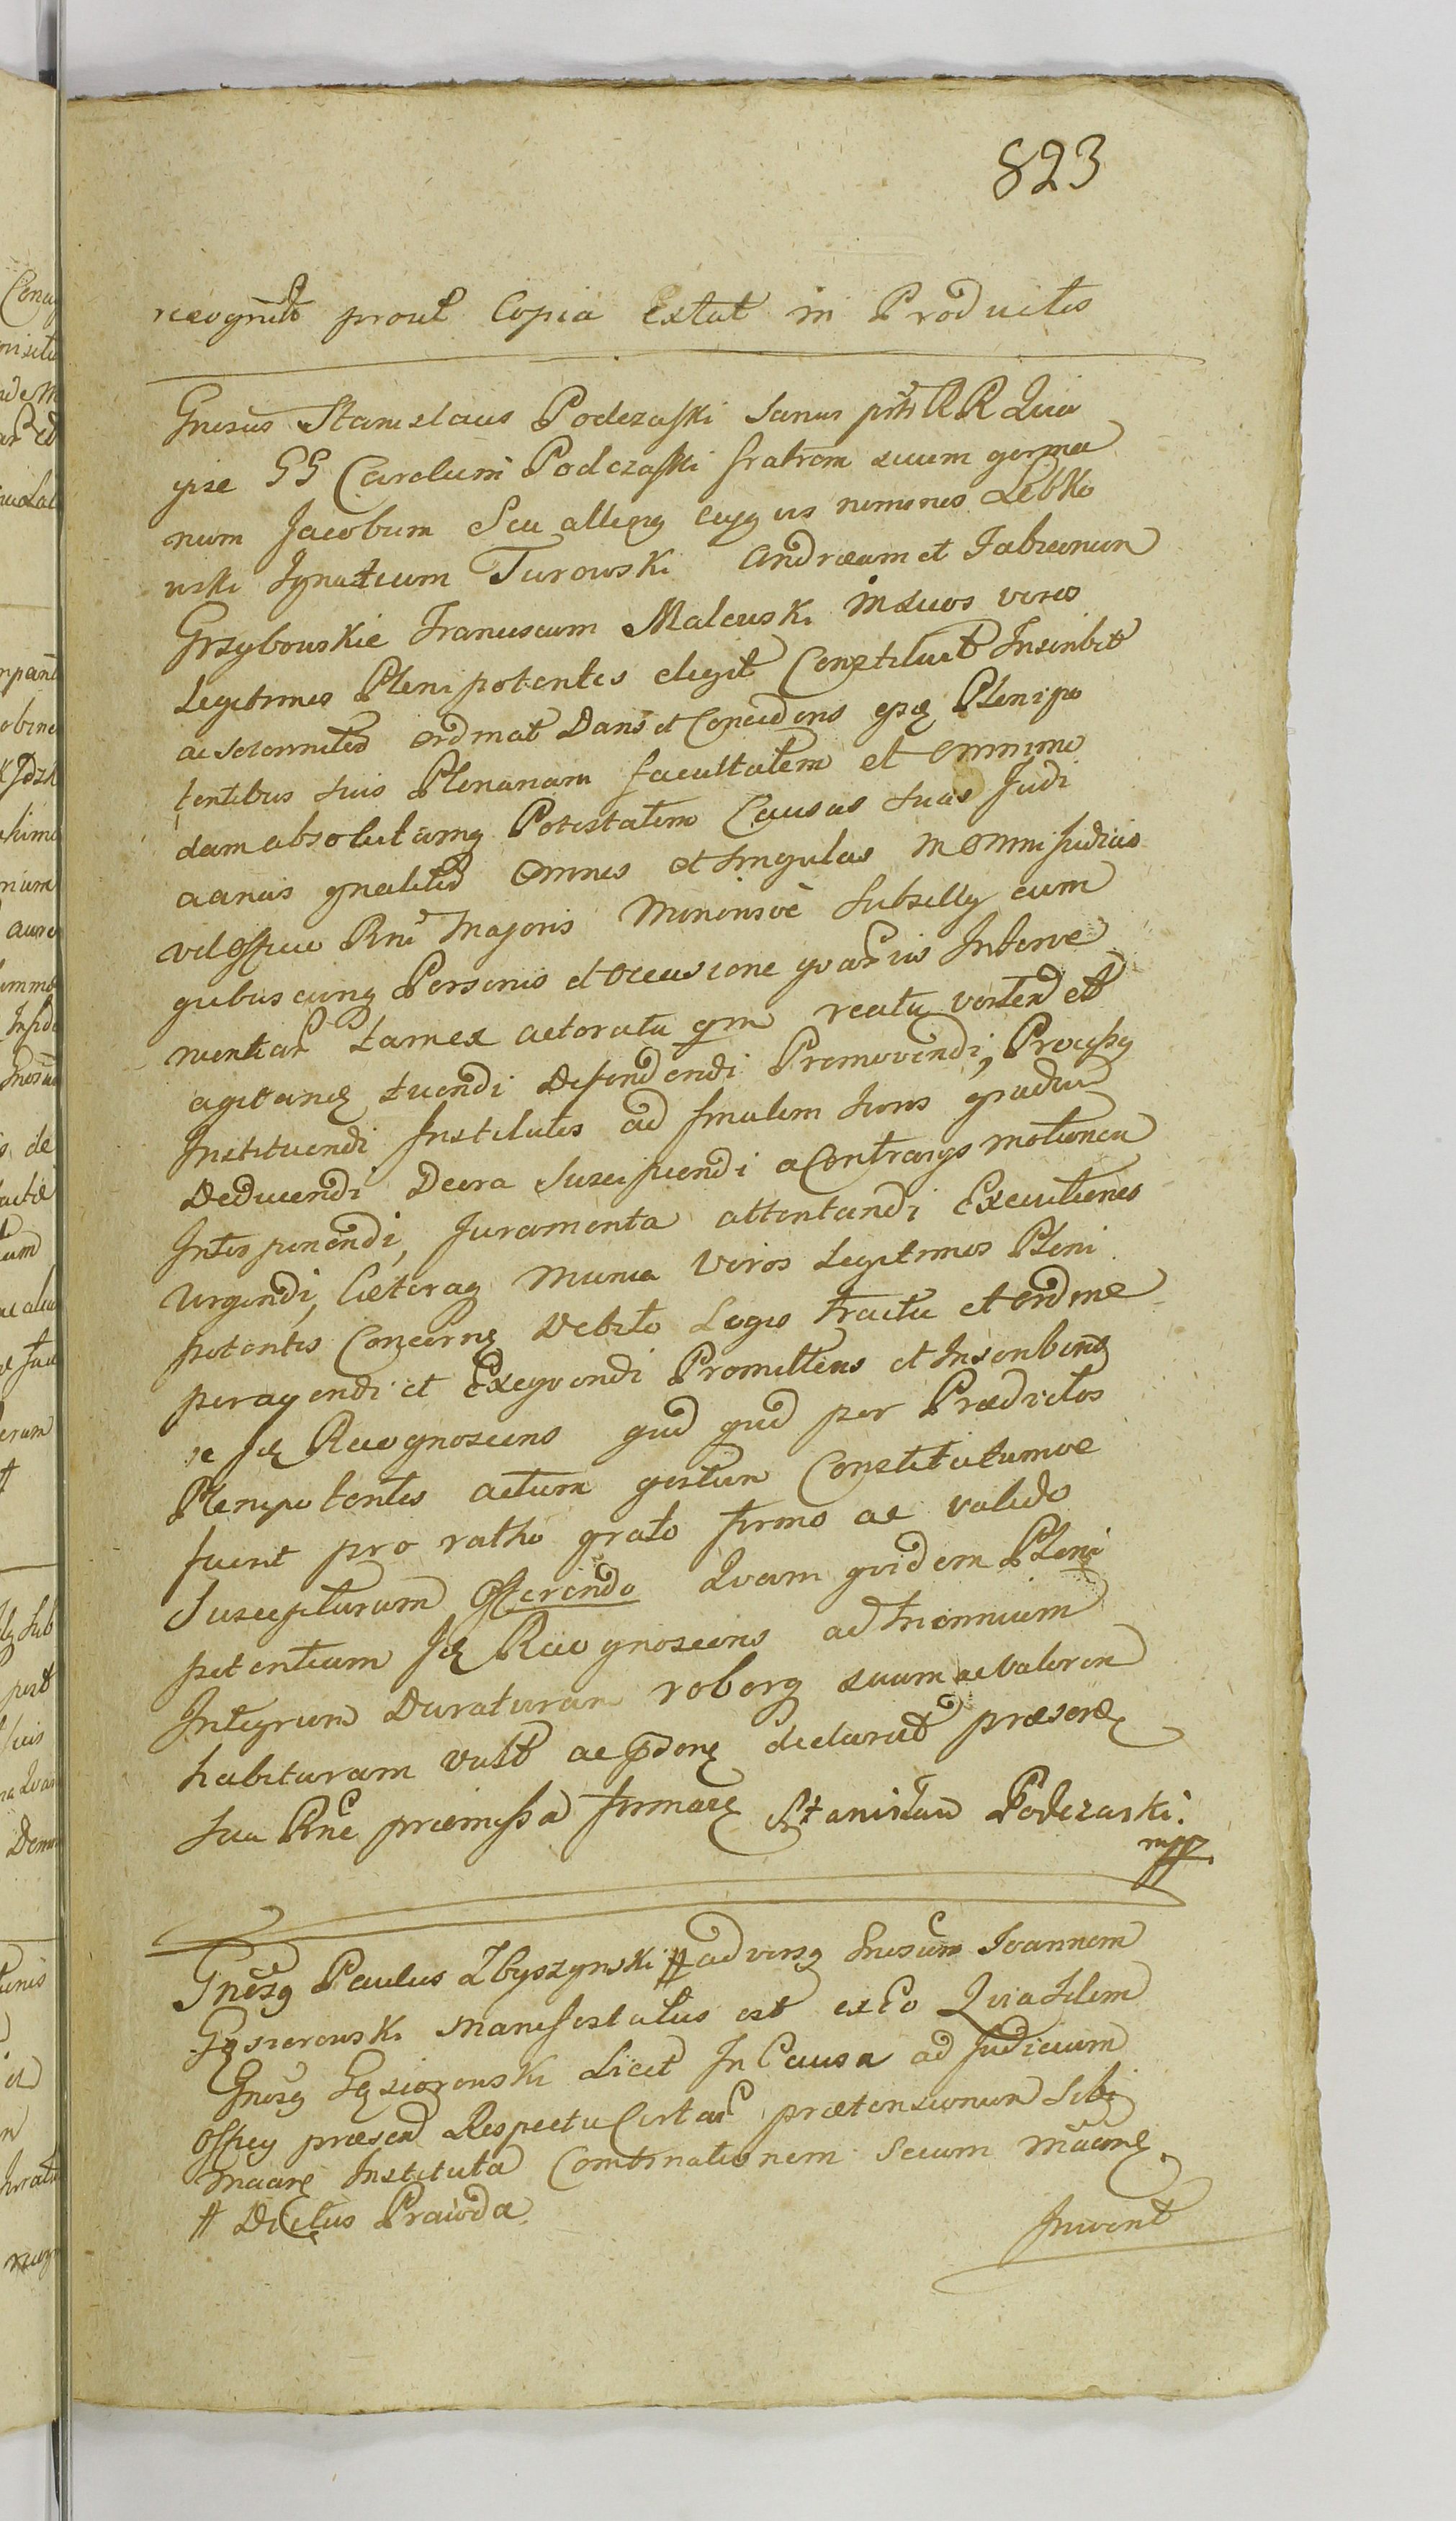 823
recognit prout Copia Extat in Productis
Gnrsus Stanislaus Podczaski Sanus pnts RR Quia
ipse GG Carolum Podczaski fratrem suum germa
num Jacobum Seu alleng cujq us nominis Lebko
wski Ignatium Turowski Andream et Fabianum
Grzybowskie Franciscum Malewski in suos veros
Legitimos Plenipotentes elegit Constituit Inscribit
ac solennited ordinat Dans et Concedens ipsq Plenipo
tentibus suis Plenariam facultatem et omnimo
dam absolutamq Potestatem Causas suas Judi
ciarias gnalited omnes et singulas in omni Judicio
vel Officio Rni Majoris Minorisve Subselly cum
quibuscunq Personis et occasione quarvis Interve
nientiar tamex actoratu qm reatu vertend et
agitandq tuendi Defendendi Promovendi, Processq
Instituendi Institutos ad finalem Juris gradum
Deducendi Decra Suscipiendi a Contrarys motionem
Interponendi, Juramenta attentandi Executiones
Urgendi, Caeteraq Munia Viros Legitimos Pleni
potentes Concernq Debito Legis tractu et ordine
peragendi et Exequendi Promittens et Inscribens
se Jdq Recognoscens qud qud per Praedictos
Plenipotentes actum gestum Constitutumve
fuerit pro ratho grato firmo ac valido
Suscepturum Offerendo Quam quidem Pleni
potentiam Jdq Recognoscens ad triennium
Integrum Duraturam roborq suum ac valorem
habituram vult ac pdenq declarat praesenq
sua Rne praemissa firmarq Stanisław Podczaski.
mpp.
Gnesq Paulus Zbyszynski # adversq Gnesum Joannem
Gąsiorowski manifestatus est ex Eo Quia Idem
Gnosq Gąsiorowski Licet In Causa ad Judicium
Officy praesend Respectu Certar praetensionum Sibi
maarq Instituta Combinationem Secum maamq.
# Dictus Prawda
Inierit